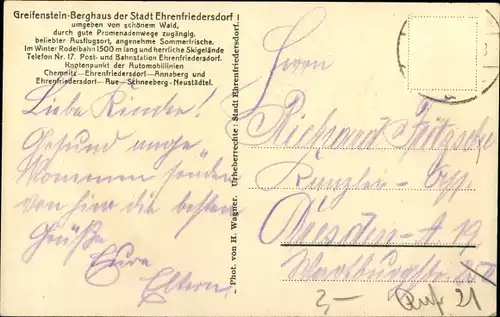 Greifenstein-Berghaus der Stadt Ehrenfriedersdorf
umgeben von schönem Wald,
durch gute Promenadenwege zugängig,
beliebter Ausflugsort, angenehme Sommerfrische.
Im Winter Rodelbahn 1500 m lang und herrliche Skigelände
Telefon Nr. 17. Post- und Bahnstation Ehrenfriedersdorf.
Knotenpunkt der Automobillinien
Chemnitz-Ehrenfriedersdorf-Annaberg und
Ehrenfriedersdorf-Aue-Schneeberg-Neustädtel.
Liebe Kinder!
Gesund ange
kommen senden
von hier die besten
Grüße
Eure
Eltern
Phot. von H. Wagner. Urheberrechte: Stadt Ehrenfriedersdorf.
Herrn
Richard Fritzsche
Kanzlei-
Dresden-A 19
2,-
21